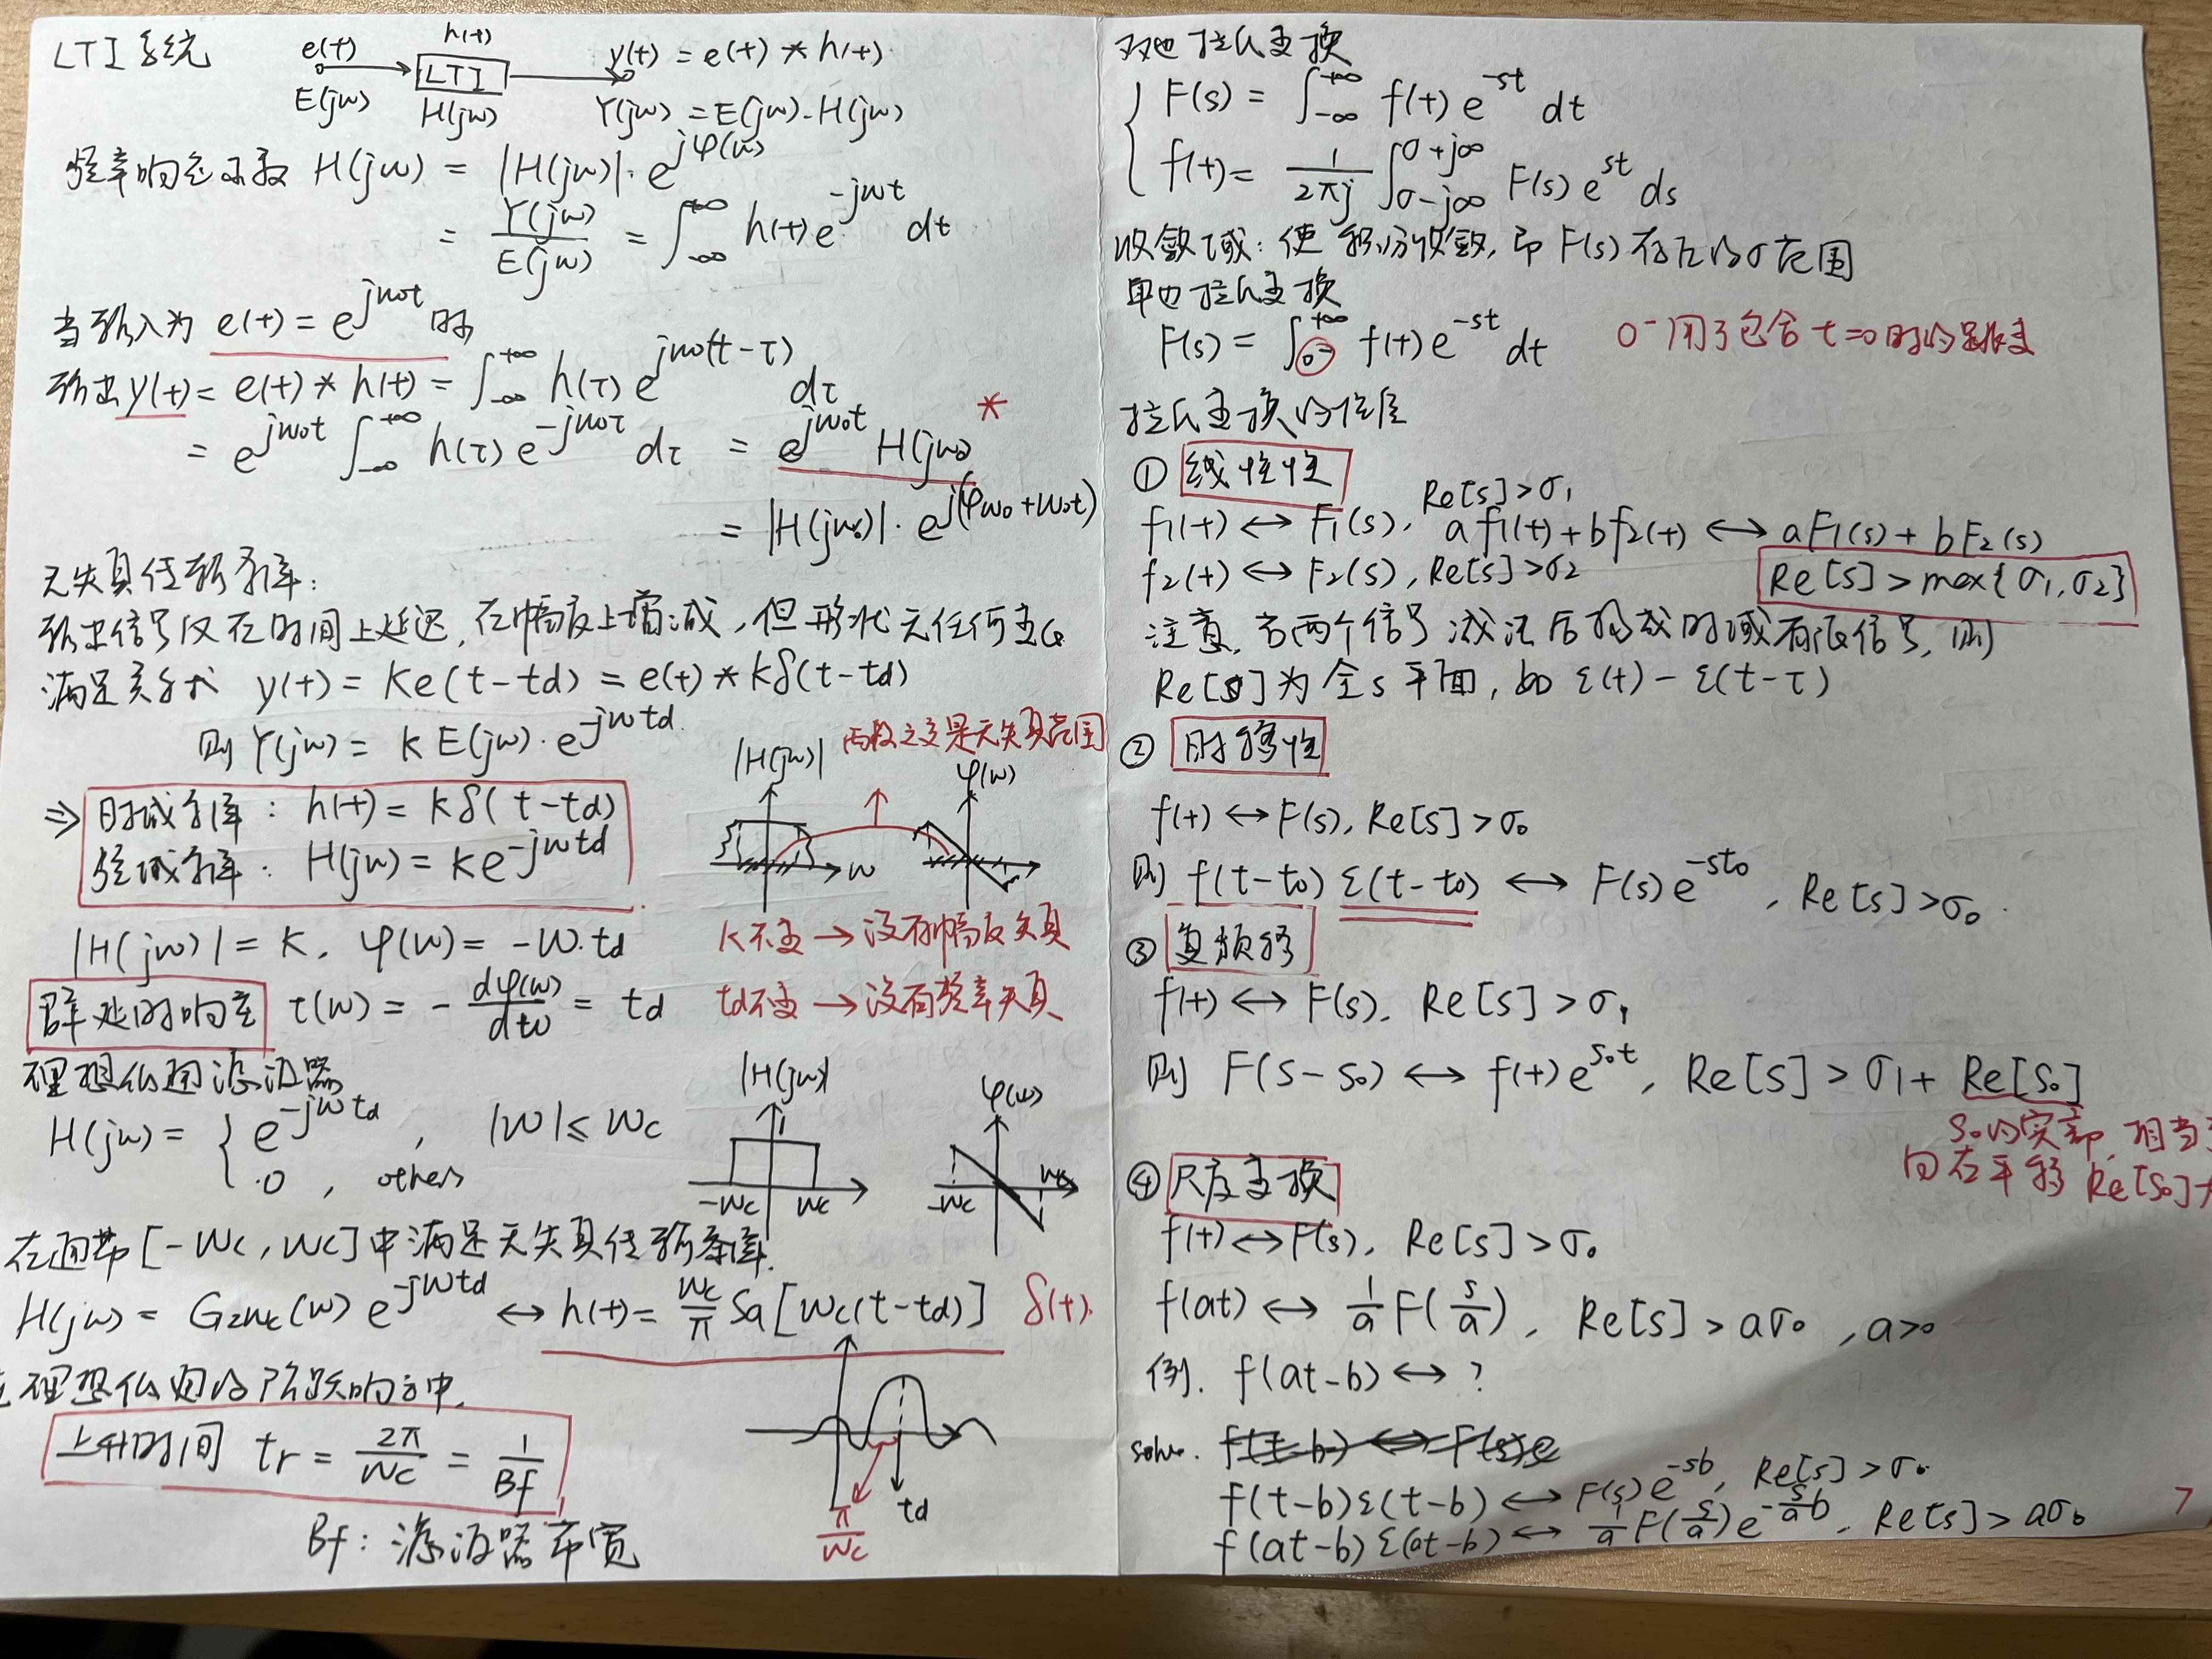 LTI系统
e(t)
h(t)
LTI
y(t) = e(t) * h(t)
E(jω)
H(jω)
Y(jω) = E(jω)·H(jω)
频率响应函数 H(jω) = |H(jω)|·e^{jφ(ω)}
= Y(jω)/E(jω) = ∫_{-∞}^{+∞} h(t)e^{-jωt} dt
当输入为 e(t) = e^{jω₀t} 时
输出 y(t) = e(t) * h(t) = ∫_{-∞}^{+∞} h(τ) e^{jω₀(t-τ)} dτ
= e^{jω₀t} ∫_{-∞}^{+∞} h(τ) e^{-jω₀τ} dτ = e^{jω₀t} H(jω₀) *
= |H(jω₀)|·e^{j(φω₀+ω₀t)}
无失真传输条件:
输出信号仅在时间上延迟,在幅度上增减,但形状无任何变化
满足关系式 y(t) = Ke(t-td) = e(t) * Kδ(t-td)
则 Y(jω) = K E(jω)·e^{-jωtd}
两段之交是无失真范围
|H(jω)|
φ(ω)
ω
⇒ 时域条件: h(t) = Kδ(t-td)
频域条件: H(jω) = Ke^{-jωtd}
|H(jω)| = K, φ(ω) = -ω·td
K不变 → 没有幅度失真
群延时响应 τ(ω) = - dφ(ω)/dω = td
td不变 → 没有频率失真
理想低通滤波器
H(jω) = { e^{-jωtd}, |ω| ≤ ωc
0, others
|H(jω)|
1
-ωc
ωc
φ(ω)
-ωc
ωc
在通带[-ωc, ωc]中满足无失真传输条件.
H(jω) = G2ωc(ω) e^{-jωtd} ↔ h(t) = ωc/π Sa[ωc(t-td)] δ(t).
在理想低通的阶跃响应中,
上升时间 tr = 2π/ωc = 1/Bf
π/ωc
td
Bf: 滤波器带宽
双边拉氏变换
{ F(s) = ∫_{-∞}^{+∞} f(t) e^{-st} dt
f(t) = 1/2πj ∫_{σ-j∞}^{σ+j∞} F(s) e^{st} ds
收敛域: 使积分收敛, 即 F(s) 存在的σ范围
单边拉氏变换
F(s) = ∫_{0⁻}^{+∞} f(t) e^{-st} dt
0⁻用了包含 t=0时的跳变
拉氏变换的性质
① 线性性
f₁(t) ↔ F₁(s), Re[s]>σ₁
af₁(t)+bf₂(t) ↔ aF₁(s)+bF₂(s)
f₂(t) ↔ F₂(s), Re[s]>σ₂
Re[s] > max{σ₁,σ₂}
注意, 若两个信号减法后构成时域有限信号, 则
Re[s]为全s平面, 如 ε(t) - ε(t-τ)
② 时移性
f(t) ↔ F(s), Re[s] > σ₀
则 f(t-t₀) ε(t-t₀) ↔ F(s)e^{-st₀}, Re[s]>σ₀.
③ 复频移
f(t) ↔ F(s), Re[s] > σ₁
则 F(s-s₀) ↔ f(t)e^{s₀t}, Re[s] > σ₁+Re[s₀]
s₀的实部, 相当
向右平移 Re[s₀]
④ 尺度变换
f(t) ↔ F(s), Re[s] > σ₀
f(at) ↔ 1/a F(s/a), Re[s] > aσ₀, a>0
例. f(at-b) ↔ ?
solve.
f(t-b)ε(t-b) ↔ F(s)e^{-sb}, Re[s] > σ₀
f(at-b)ε(at-b) ↔ 1/a F(s/a) e^{-s/a b}, Re[s] > aσ₀
7